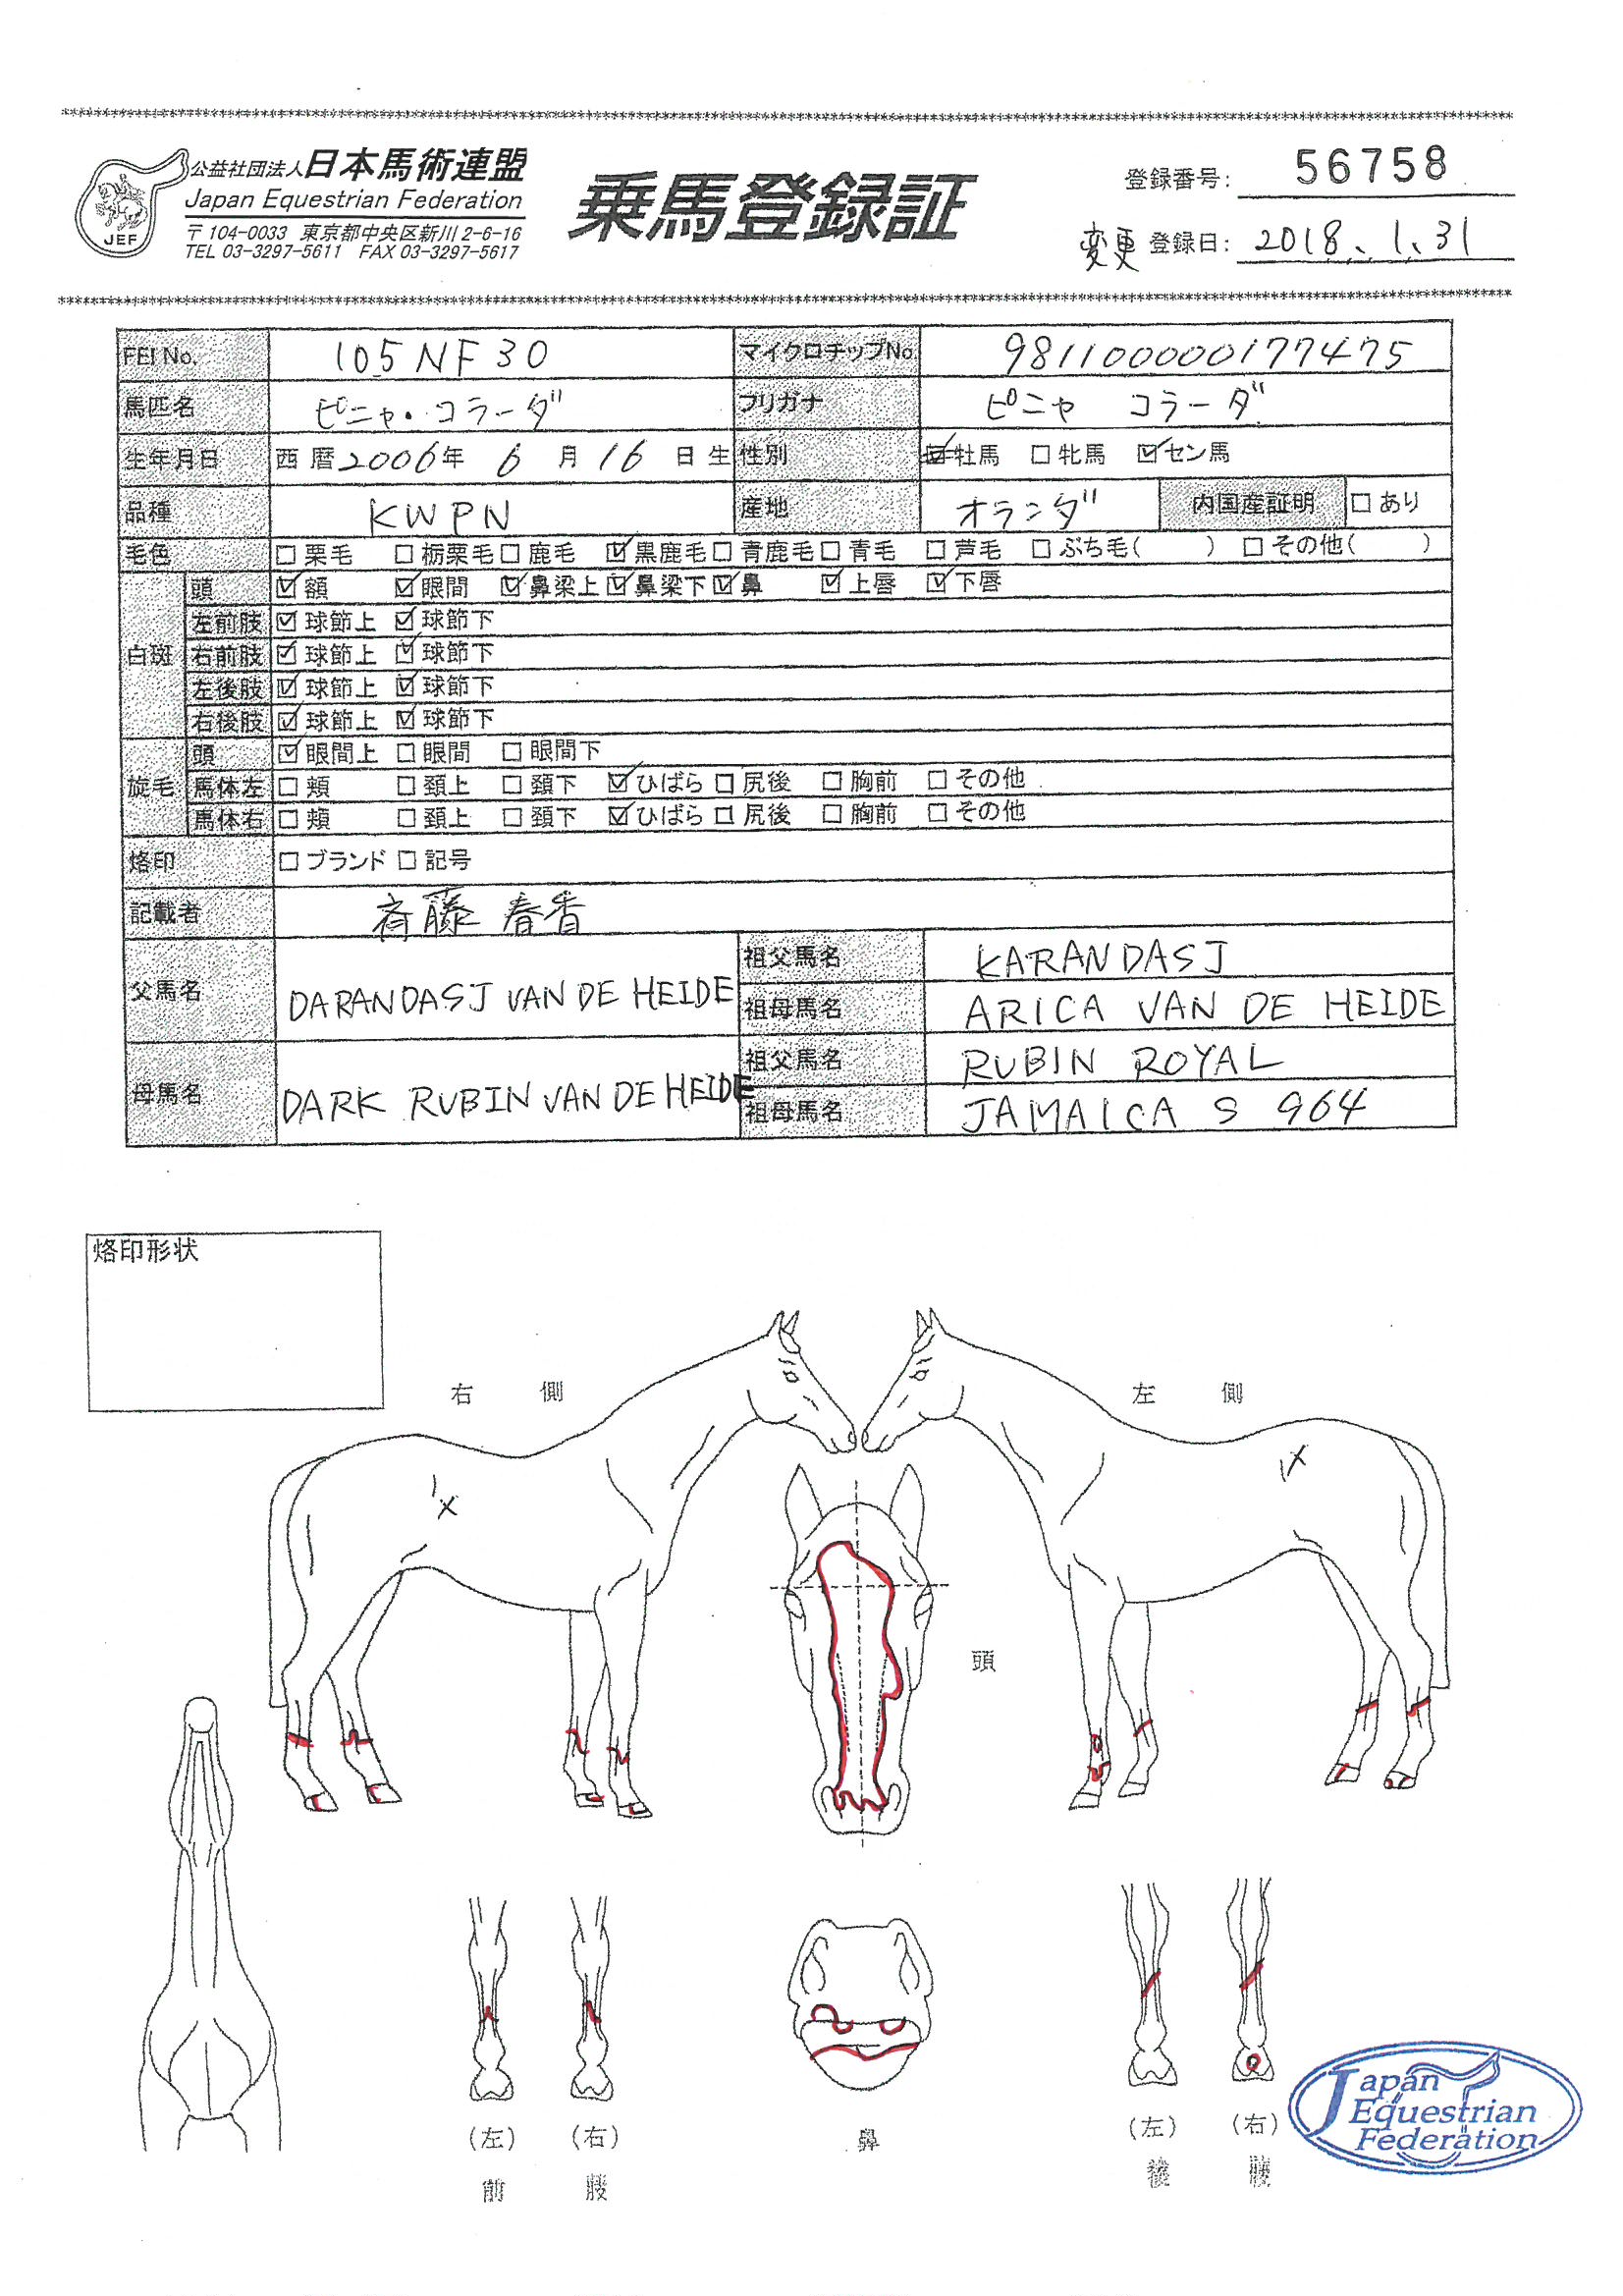 公益社団法人日本馬術連盟
Japan Equestrian Federation
〒104-0033 東京都中央区新川2-6-16
TEL 03-3297-5611 FAX 03-3297-5617
JEF
乗馬登録証
登録番号: 56758
変更 登録日: 2018.1.31
FEI No. 105NF30 マイクロチップNo 981100000177475
馬匹名 ピニャ・コラーダ フリガナ ピニャ コラーダ
生年月日 西暦2006年 6月16日生 性別 ☑牡馬 □牝馬 ☑セン馬
品種 KWPN 産地 オランダ 内国産証明 □あり
毛色 □栗毛 □栃栗毛 □鹿毛 ☑黒鹿毛 □青鹿毛 □青毛 □芦毛 □ぶち毛( ) □その他( )
白斑 頭 ☑額 ☑眼間 ☑鼻梁上 ☑鼻梁下 ☑鼻 ☑上唇 ☑下唇
左前肢 ☑球節上 ☑球節下
右前肢 ☑球節上 ☑球節下
左後肢 ☑球節上 ☑球節下
右後肢 ☑球節上 ☑球節下
旋毛 頭 ☑眼間上 □眼間 □眼間下
馬体左 □頬 □頚上 □頚下 ☑ひばら □尻後 □胸前 □その他
馬体右 □頬 □頚上 □頚下 ☑ひばら □尻後 □胸前 □その他
烙印 □ブランド □記号
記載者 斉藤 春香
父馬名 DARANDASJ VAN DE HEIDE 祖父馬名 KARANDASJ
祖母馬名 ARICA VAN DE HEIDE
母馬名 DARK RUBIN VAN DE HEIDE 祖父馬名 RUBIN ROYAL
祖母馬名 JAMAICA S 964
烙印形状
右側 左側
頭
(左) (右) 鼻 (左) (右)
前肢 後肢
Japan
Equestrian
Federation